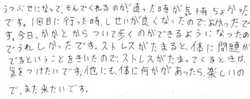 うつぶせになって、もんでくれるのが、直った時が気持ちよかった
です。1回目に行った時、しせいが良くなったのでよかったで
す。今日、かかとがついて歩くのができるようになったの
でうれしかったです。ストレスがたまると、体に問題が
でるということをきいたので、ストレスがたまってくるときは、
気をつけたいです。他にも、体に何かがあったら、楽しいの
で、また来たいです。